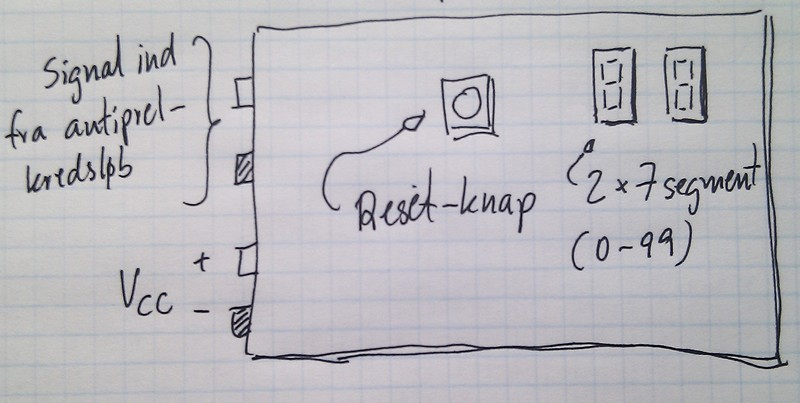 Signal ind
fra antiprel-
kredsløb
Reset-knap
2 x 7 segment
(0-99)
+
Vcc
-